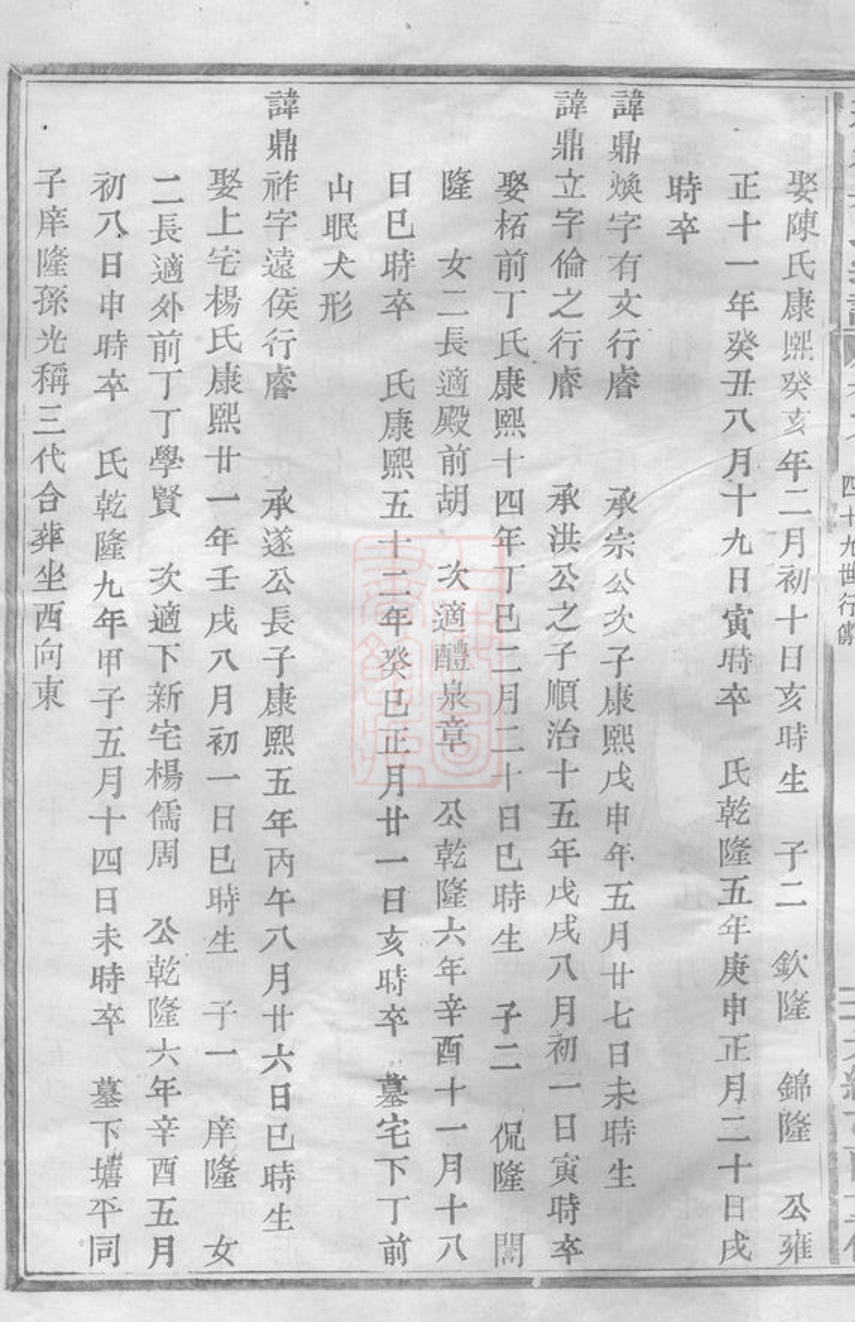 四十九世行傳
娶陳氏康熙癸亥年二月初十日亥時生　子二　欽隆　錦隆　公雍
正十一年癸丑八月十九日寅時卒　氏乾隆五年庚申正月二十日戌
時卒
諱鼎煥字有文行睿　　承宗公次子康熙戊申年五月廿七日未時生
諱鼎立字倫之行睿　　承洪公之子順治十五年戊戌八月初一日寅時卒
娶柘前丁氏康熙十四年丁巳二月二十日巳時生　子二　侃隆　誾
隆　女二長適殿前胡　次適醴泉章　公乾隆六年辛酉十一月十八
日巳時卒　氏康熙五十二年癸巳正月廿一日亥時卒　墓宅下丁前
山眠犬形
諱鼎祚字遠侯行睿　　承遂公長子康熙五年丙午八月廿六日巳時生
娶上宅楊氏康熙廿一年壬戌八月初一日巳時生　子一　庠隆　女
二長適外前丁丁學賢　次適下新宅楊儒周　公乾隆六年辛酉五月
初八日申時卒　氏乾隆九年甲子五月十四日未時卒　墓下塘平同
子庠隆孫光稱三代合葬坐西向東